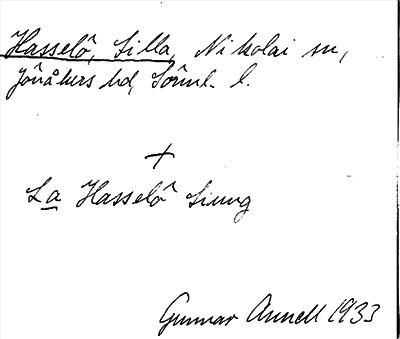 Hasselö, Lilla, Nikolai sn,
Jönåkers hd, Söml. l.
+
La Hasselö
Gunnar Annell 1933